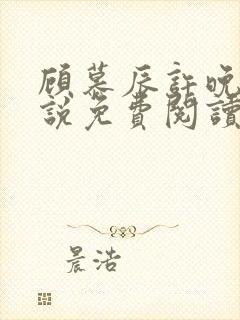 顾慕辰許晚
說免費閱讀
晨浩